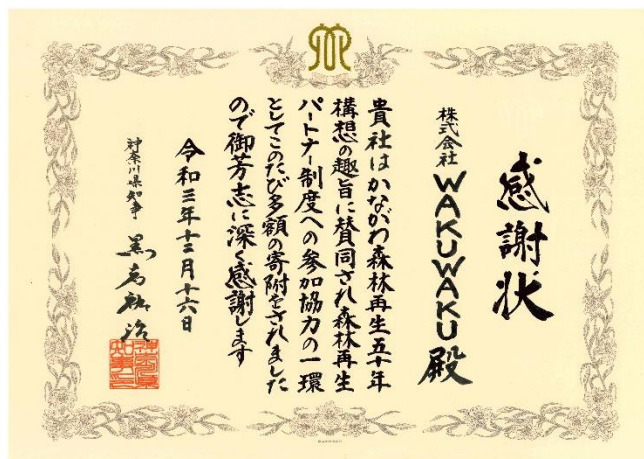 感謝状
株式会社 WAKUWAKU 殿
貴社はかながわ森林再生五十年
構想の趣旨に賛同され森林再生
パートナー制度への参加協力の一環
としてこのたび多額の寄附をされました
ので御芳志に深く感謝します
令和三年十二月十六日
神奈川県知事 黒岩祐治